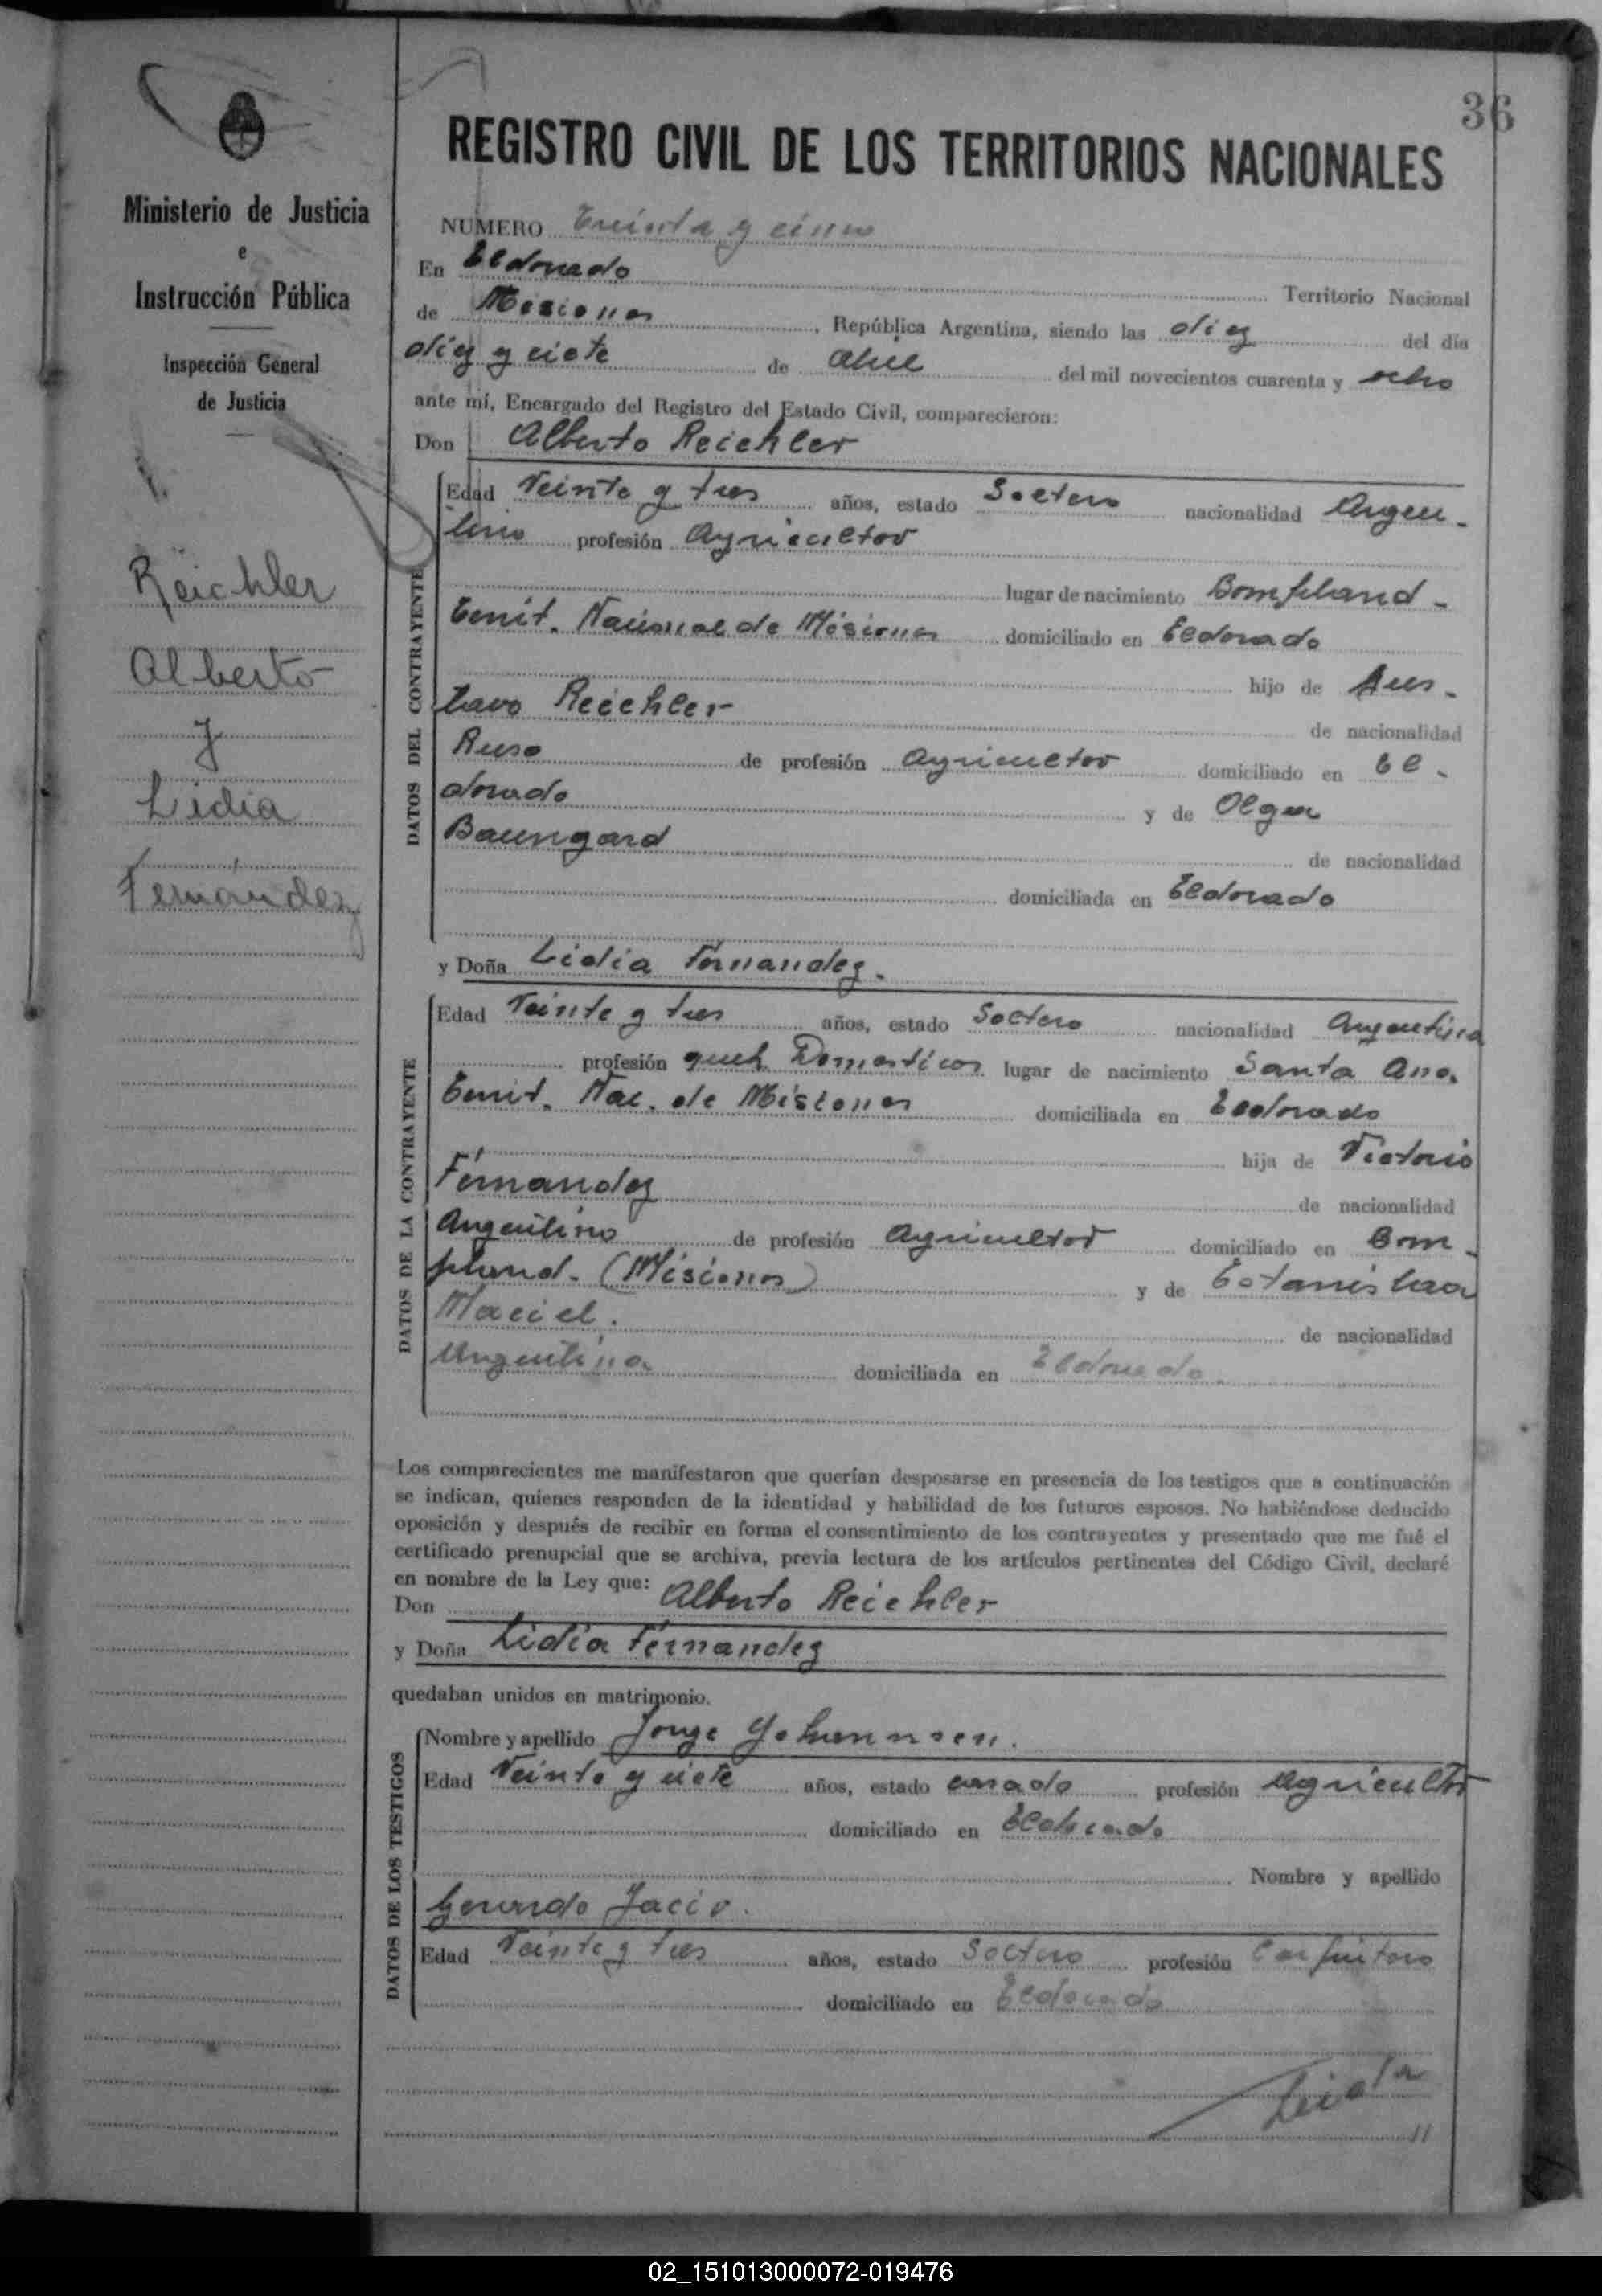 36
Ministerio de Justicia
e
Instrucción Pública
Inspección General
de Justicia
Reichler
Alberto
y
Lidia
Fernandez
REGISTRO CIVIL DE LOS TERRITORIOS NACIONALES
NUMERO Treinta y cinco
En Eldorado
Territorio Nacional
de Misiones, República Argentina, siendo las diez del día
diez y siete de Abril del mil novecientos cuarenta y ocho
ante mí, Encargado del Registro del Estado Civil, comparecieron:
Don Alberto Reichler
DATOS DEL CONTRAYENTE
Edad Veinte y tres años, estado Soltero nacionalidad Argen-
tino profesión Agricultor
lugar de nacimiento Bompland-
Territ. Nacional de Misiones domiciliado en Eldorado
hijo de Gus-
tavo Reichler
de nacionalidad
Ruso de profesión Agricultor domiciliado en El-
dorado y de Olga
Baungard
de nacionalidad
domiciliada en Eldorado
y Doña Lidia Fernandez.
DATOS DE LA CONTRAYENTE
Edad Veinte y tres años, estado Soltero nacionalidad Argentina
profesión queh. Domesticos lugar de nacimiento Santa Ana.
Territ. Nac. de Misiones domiciliada en Eldorado
hija de Victorio
Fernandez
de nacionalidad
Argentino de profesión Agricultor domiciliado en Bom-
pland. (Misiones) y de Estanislaa
Maciel.
de nacionalidad
Argentina. domiciliada en Eldorado.
Los comparecientes me manifestaron que querían desposarse en presencia de los testigos que a continuación
se indican, quienes responden de la identidad y habilidad de los futuros esposos. No habiéndose deducido
oposición y después de recibir en forma el consentimiento de los contrayentes y presentado que me fué el
certificado prenupcial que se archiva, previa lectura de los artículos pertinentes del Código Civil, declaré
en nombre de la Ley que:
Don Alberto Reichler
y Doña Lidia Fernandez
quedaban unidos en matrimonio.
DATOS DE LOS TESTIGOS
Nombre y apellido Jorge Johannsen.
Edad Veinte y siete años, estado casado profesión Agricultor
domiciliado en Eldorado
Nombre y apellido
Gerardo
Edad Veinte y tres años, estado Soltero profesión Carpintero
domiciliado en Eldorado
02_151013000072-019476